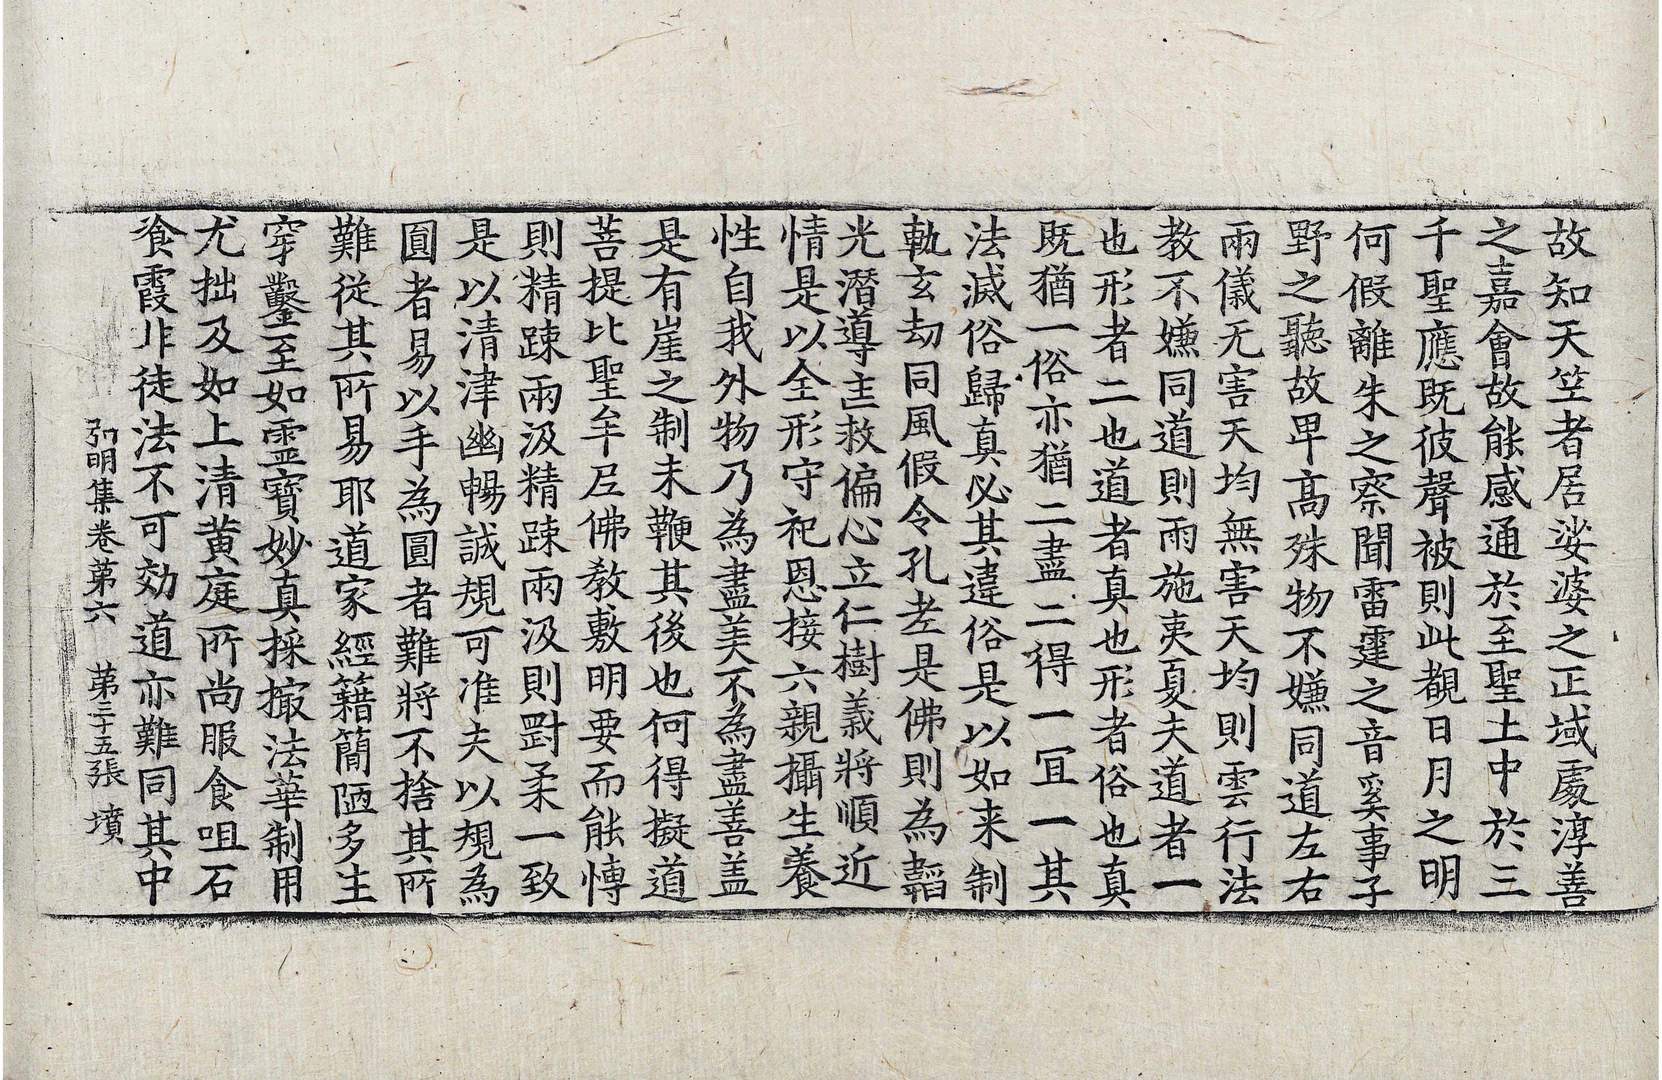 故知天竺者居娑婆之正域處淳善
之嘉會故能感通於至聖土中於三
千聖應既彼聲被則此覩日月之明
何假離朱之察聞雷霆之音奚事子
野之聽故卑高殊物不嫌同道左右
兩儀无害天均無害天均則雲行法
教不嫌同道則雨施夷夏夫道者一
也形者二也道者真也形者俗也真
既猶一俗亦猶二盡二得一冝一其
法滅俗歸真必其違俗是以如来制
軌玄劫同風假令孔老是佛則為韜
光潛導匡救偏心立仁樹義將順近
情是以全形守祀恩接六親攝生養
性自我外物乃為盡美不為盡善盖
是有崖之制未鞭其後也何得擬道
菩提比聖牟尼佛教敷明要而能慱
則精踈兩汲精踈兩汲則剛柔一致
是以清津幽暢誠䂓可准夫以䂓為
圎者易以手為圓者難將不捨其所
難從其所易耶道家經籍簡陋多生
穿鑿至如霊寶妙真採撮法華制用
尤拙及如上清黄庭所尚服食咀石
飡霞非徒法不可効道亦難同其中
弘明集卷第六 第三十五張 墳